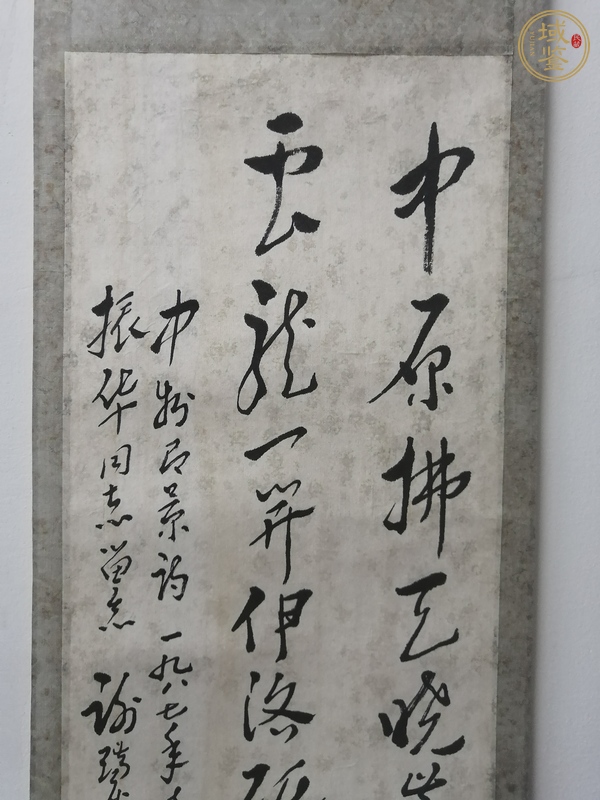 中原拂天晓
云龙一伊洛
中州即景诗 一九八七年
振华同志留念 谢瑞
域鉴